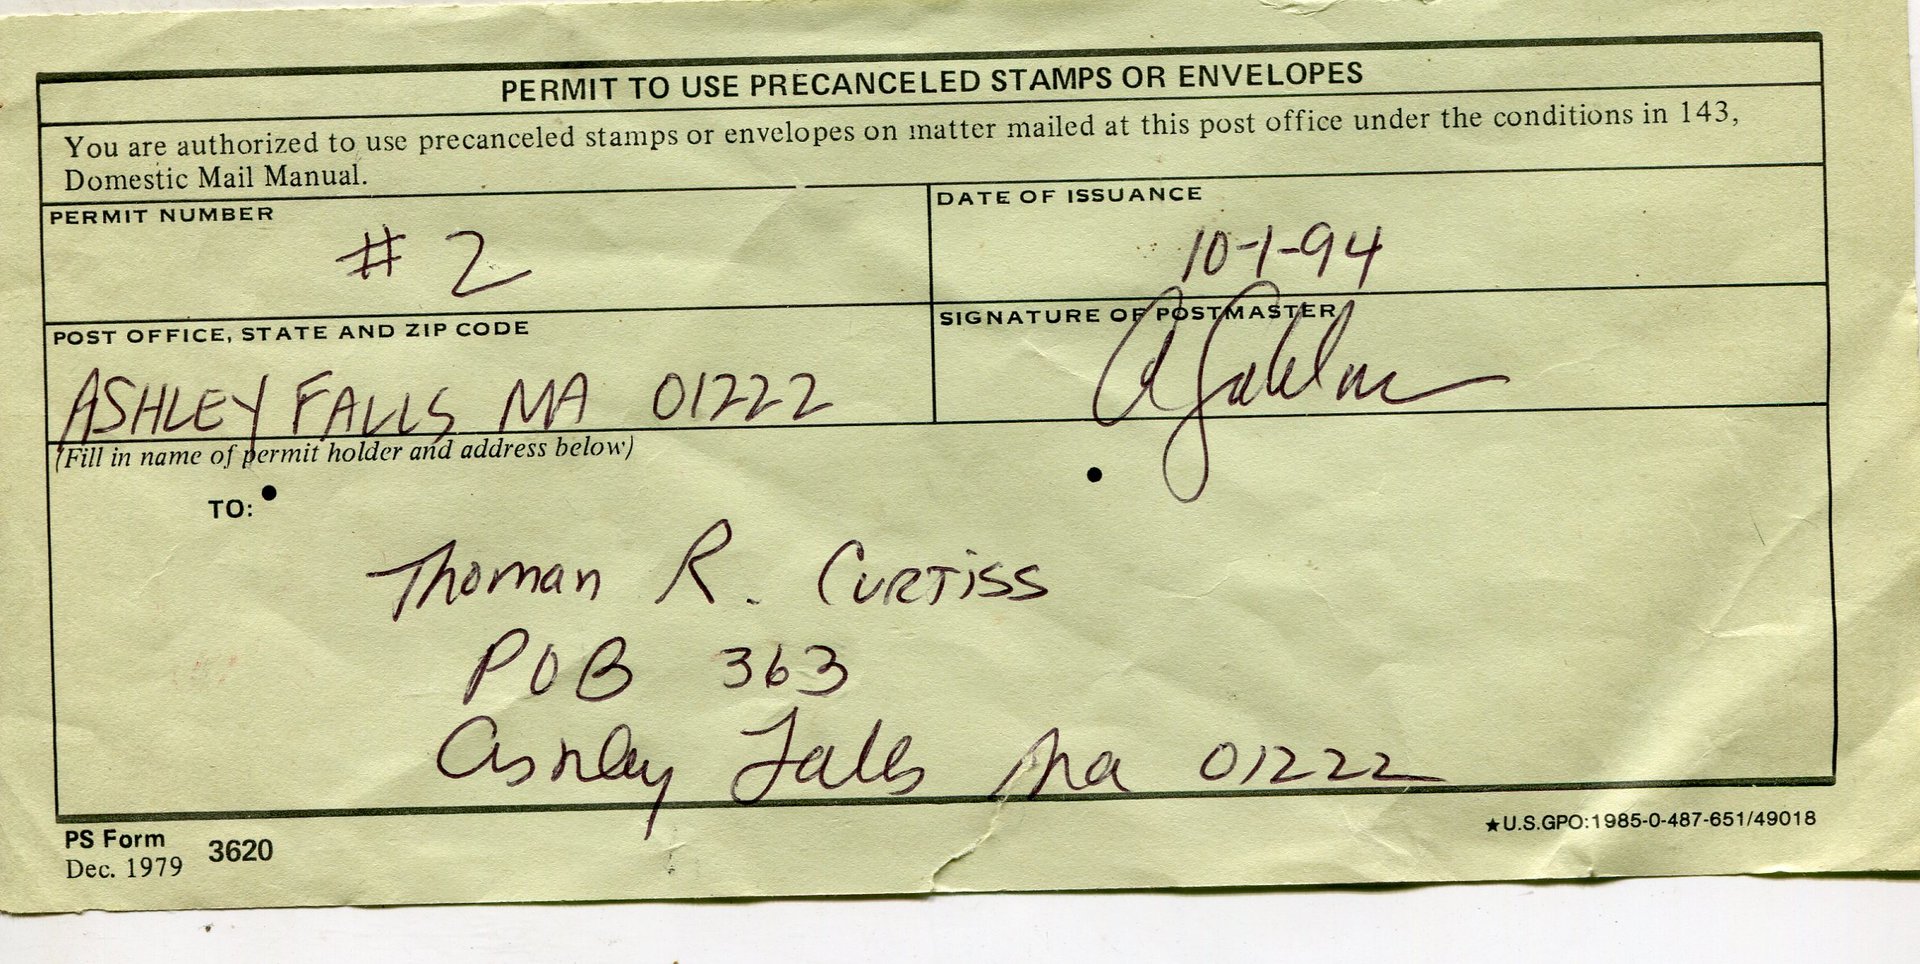 PERMIT TO USE PRECANCELED STAMPS OR ENVELOPES
You are authorized to use precanceled stamps or envelopes on matter mailed at this post office under the conditions in 143,
Domestic Mail Manual.
PERMIT NUMBER
# 2
DATE OF ISSUANCE
10-1-94
POST OFFICE, STATE AND ZIP CODE
ASHLEY FALLS MA 01222
SIGNATURE OF POSTMASTER
(Fill in name of permit holder and address below)
TO:
Thoman R. Curtiss
POB 363
Ashley Falls Ma 01222
PS Form 3620
Dec. 1979
★U.S.GPO:1985-0-487-651/49018